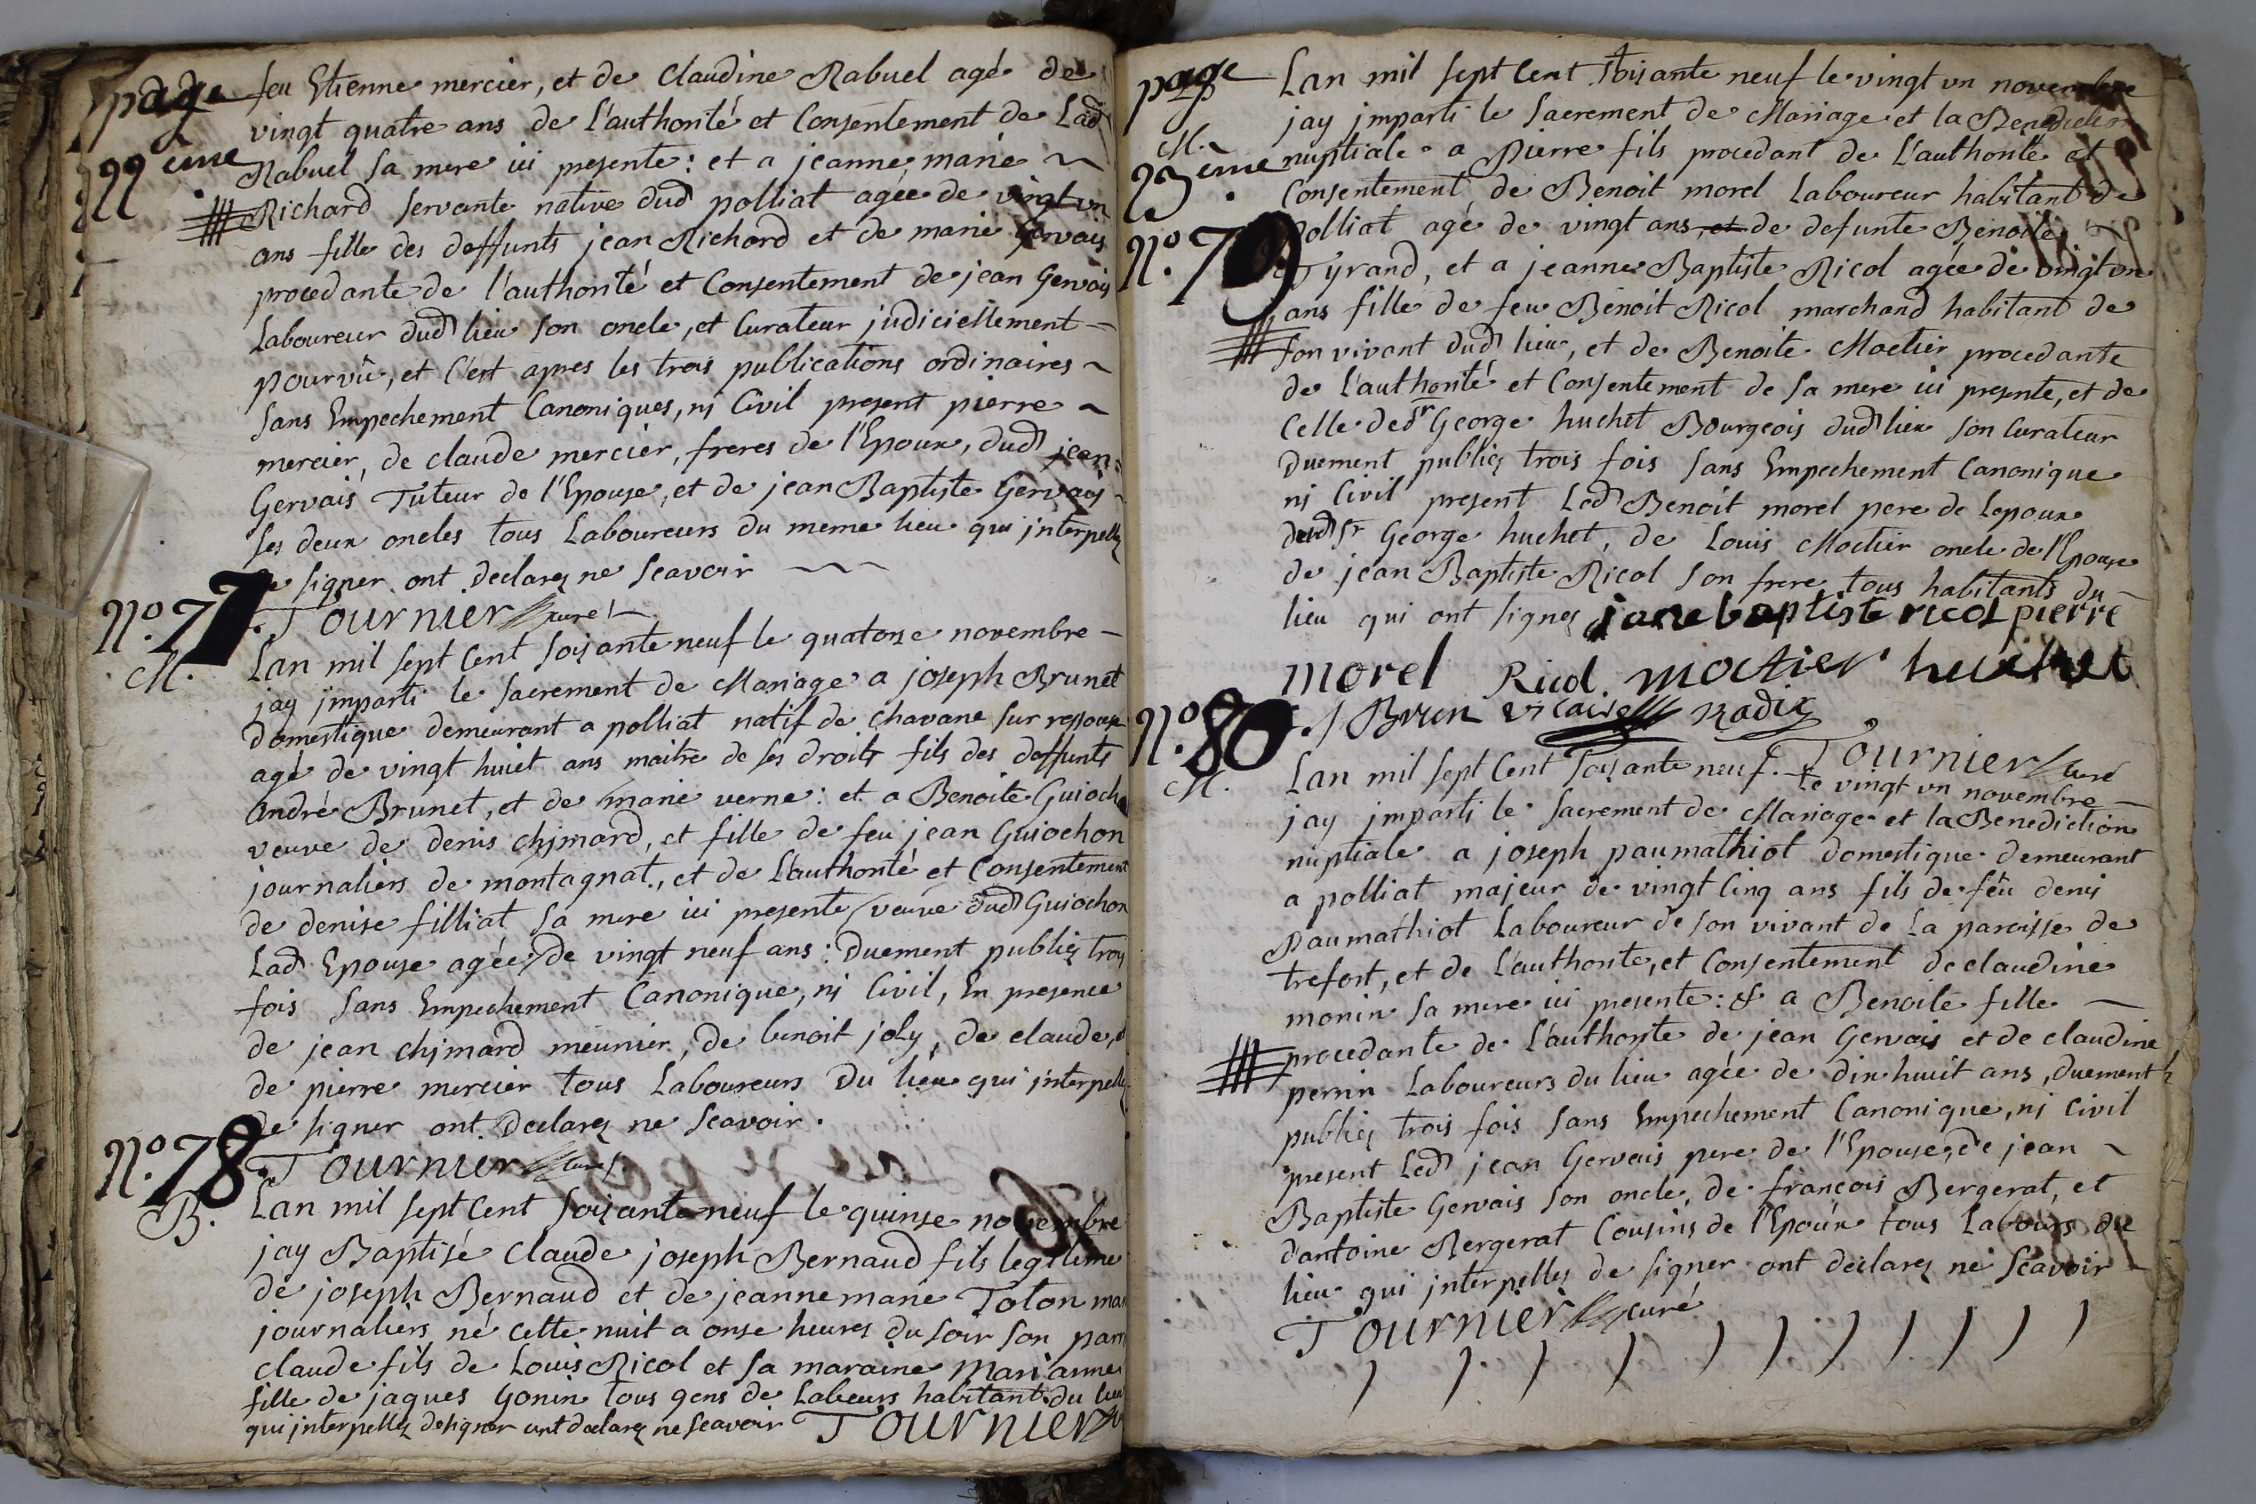 page
22eme
feu Etienne mercier, et de Claudine Rabuel agé de
vingt quatre ans de l'authorité et Consentement de Lad
Rabuel sa mere ici presente: et a jeanne marie
Richard servante native dud polliat agée de vingt un
ans fille des deffunts jean Richard et de marie Gervais
procedante de l'authorité et Consentement de jean Gervais
Laboureur dud lieu son oncle, et Curateur judiciellement
pourvû, et c'est apres les trois publications ordinaires
sans Empechement Canoniques, nj Civil present pierre
mercier, de claude mercier, freres de l'Epoux, dud jean
Gervais Tuteur de l'Epouse, et de jean Baptiste Gervais
ses deux oncles tous Laboureurs du meme lieu qui jnterpellez
de signer ont declarez ne Scavoir
Tournier curé
No. 77
M.
Lan mil sept Cent soixante neuf le quatorse novembre
jay jmparti le sacrement de Mariage a joseph Brunet
domestique demeurant a polliat natif de chavane sur ressouse
agé de vingt huict ans maitre de ses droits fils des deffunts
andré Brunet, et de marie verne: et a Benoite Guioch
veuve de denis chjmard, et fille de feu jean Guiochon
journaliers de montagnat, et de L'authorité et Consentement
de denise filliat sa mere ici presente veuve dud Guiochon
Lad Epouse agée de vingt neuf ans: Duement publiez trois
fois sans Empechement Canonique, nj Civil, En presence
de jean chjmard meunier, de benoit joly, de claude, et
de pierre mercier tous Laboureurs du lieu qui jnterpellez
de signer ont declarez ne Scavoir.
Tournier curé
No. 78
B.
Lan mil sept Cent soixante neuf le quinse novembre
jay Baptisé Claude joseph Bernaud fils legitime
de joseph Bernaud et de jeanne marie Tolon
journaliers né cette nuit a onse heures du soir son
claude fils de Louis Ricol et sa maraine Marianne
fille de jaques Gonin tous gens de Labeurs habitant du lieu
qui jnterpellez de signer ont declarez ne Scavoir Tournier
page
23eme
M.
No. 79
Lan mil sept Cent soixante neuf le vingt un novembre
jay jmparti le Sacrement de Mariage et la Benediction
nuptiale a Pierre fils procedant de L'authorité et
Consentement de Benoit morel Laboureur habitant de
polliat agé de vingt ans, et de defunte Benoite
Tyrand, et a jeanne Baptiste Ricol agée de vingt un
ans fille de feu Benoit Ricol marchand habitant de
son vivant dud lieu, et de Benoite Moctier procedante
de L'authorité et Consentement de sa mere ici presente, et de
Celle de Sr George huchet Bourgeois dud lieu son Curateur
duement publiez trois fois sans Empechement Canonique
nj Civil present Led Benoit morel pere de Lepoux
dud Sr George huchet, de Louis Moctier oncle de l'Epouse
de jean Baptiste Ricol son frere tous habitants du
lieu qui ont signez jane baptiste ricol pierre
morel Ricol. moctier huchet
Brun vicaire Radix
Tournier curé
No. 80
M.
Lan mil sept Cent soixante neuf. Le vingt un novembre
jay jmparti le Sacrement de Mariage et la Benediction
nuptiale a joseph paumathiot domestique demeurant
a polliat majeur de vingt Cinq ans fils de feu denis
paumathiot Laboureur de son vivant de La paroisse de
trefort, et de L'authorite, et Consentement de claudine
monin sa mere ici presente: & a Benoite fille
procedante de L'authorite de jean Gervais et de claudine
perrin Laboureurs du lieu agée de dix huit ans, duement
publiez trois fois sans Empechement Canonique, nj Civil
present Led jean Gervais pere de l'Epouse, de jean
Baptiste Gervais son oncle, de françois Bergerat, et
d'antoine Bergerat Cousins de l'Epoux tous Labours du
lieu qui jnterpellez de signer ont declarez ne Scavoir
Tournier curé